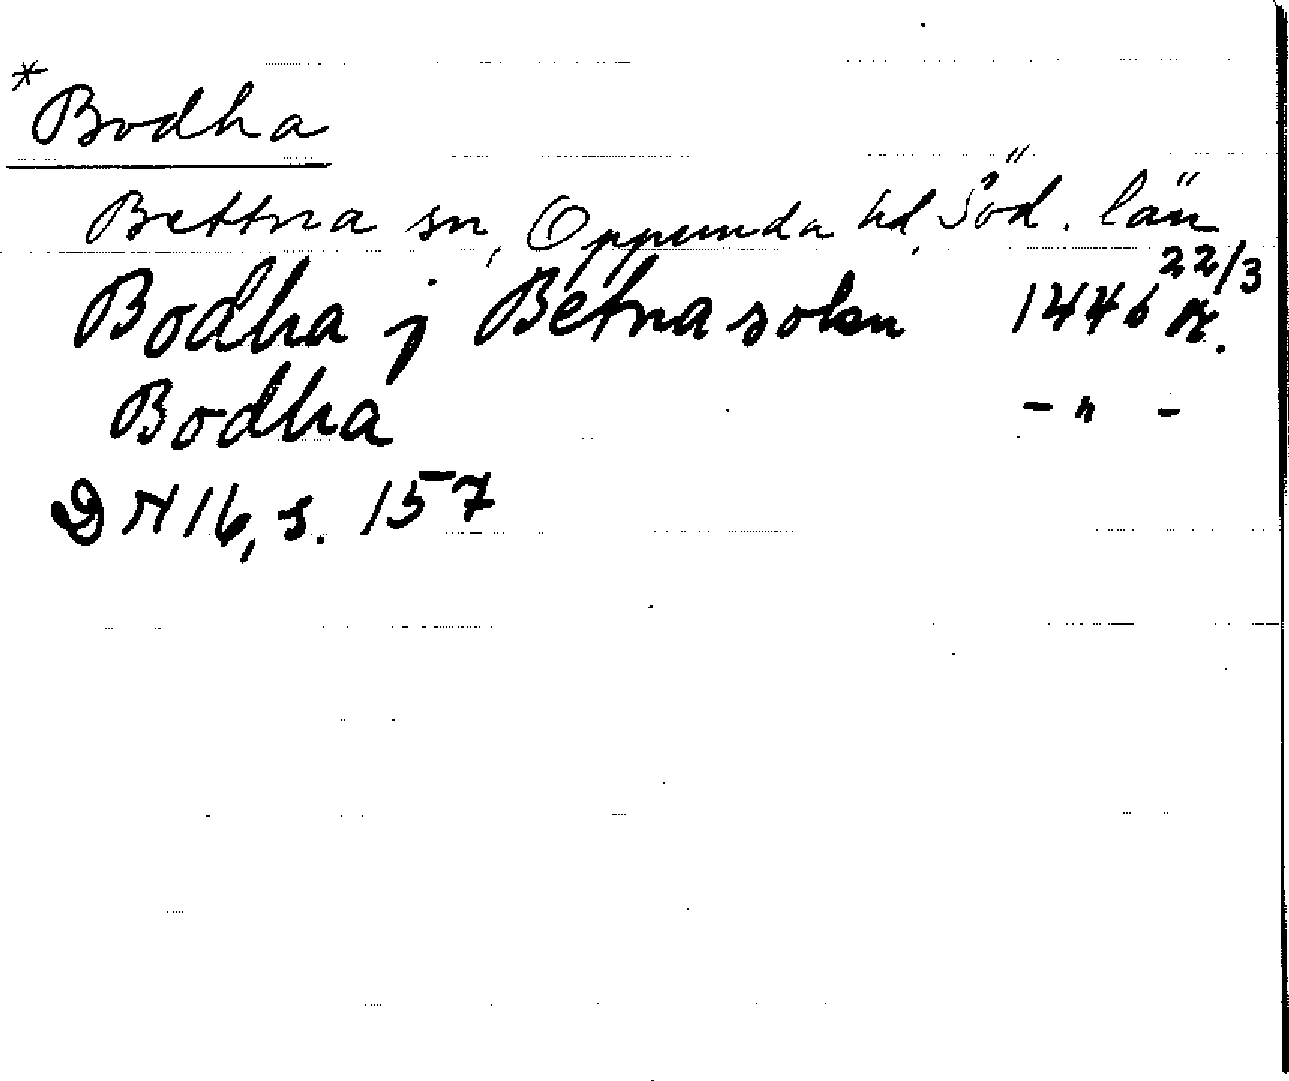 *Bodha
Bettna sn, Oppunda hd, Söd. län
Bodha j Betna sokn 1446 22/3 or.
Bodha -"-
DN 16, s. 157